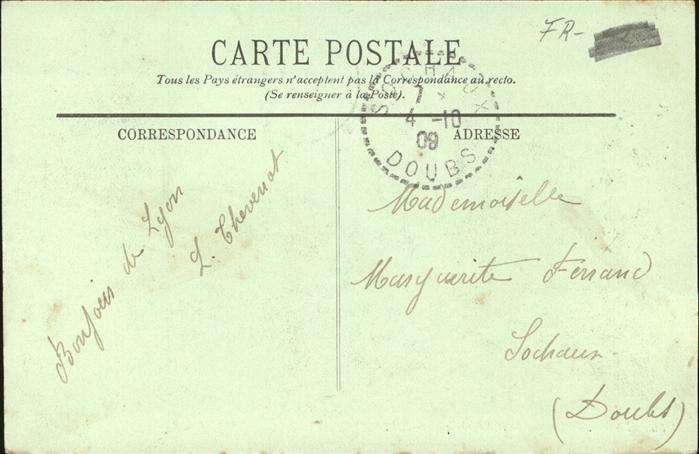 FR-
CARTE POSTALE
Tous les Pays étrangers n'acceptent pas la Correspondance au recto.
(Se renseigner à la Poste).
CORRESPONDANCE
ADRESSE
7
4 -10
09
DOUBS
Bonjour de Lyon
L. Thevenot
Mademoiselle
Marguerite Ferrand
Sochaux
(Doubs)